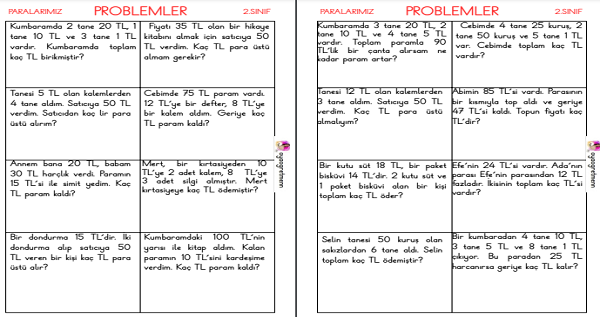 PARALARIMIZ PROBLEMLER 2.SINIF
Kumbaramda 2 tane 20 TL, 1
tane 10 TL ve 3 tane 1 TL
vardır. Kumbaramda toplam
kaç TL birikmiştir?
Fiyatı 35 TL olan bir hikaye
kitabını almak için satıcıya 50
TL verdim. Kaç TL para üstü
almam gerekir?
Tanesi 5 TL olan kalemlerden
4 tane aldım. Satıcıya 50 TL
verdim. Satıcıdan kaç lir para
üstü alırım?
Cebimde 75 TL param vardı.
12 TL'ye bir defter, 8 TL'ye
bir kalem aldım. Geriye kaç
TL param kaldı?
Annem bana 20 TL, babam
30 TL harçlık verdi. Paramın
15 TL'si ile simit yedim. Kaç
TL param kaldı?
Mert, bir kırtasiyeden 10
TL'ye 2 adet kalem, 8 TL'ye
3 adet silgi almıştır. Mert
kırtasiyeye kaç TL ödemiştir?
Bir dondurma 15 TL'dir. İki
dondurma alıp satıcıya 50
TL veren bir kişi kaç TL para
üstü alır?
Kumbaramdaki 100 TL'nin
yarısı ile kitap aldım. Kalan
paramın 10 TL'sini kardeşime
verdim. Kaç TL param kaldı?
PARALARIMIZ PROBLEMLER 2.SINIF
Kumbaramda 3 tane 20 TL, 2
tane 10 TL ve 4 tane 5 TL
vardır. Toplam paramla 90
TL'lik bir çanta alırsam ne
kadar param artar?
Cebimde 4 tane 25 kuruş, 2
tane 50 kuruş ve 5 tane 1 TL
var. Cebimde toplam kaç TL
vardır?
Tanesi 12 TL olan kalemlerden
3 tane aldım. Satıcıya 50 TL
verdim. Kaç TL para üstü
almalıyım?
Abimin 85 TL'si vardı. Parasının
bir kısmıyla top aldı ve geriye
47 TL'si kaldı. Topun fiyatı kaç
TL'dir?
Bir kutu süt 18 TL, bir paket
bisküvi 14 TL'dir. 2 kutu süt ve
1 paket bisküvi alan bir kişi
toplam kaç TL öder?
Efe'nin 24 TL'si vardır. Ada'nın
parası Efe'nin parasından 12 TL
fazladır. İkisinin toplam kaç TL'si
vardır?
Selin tanesi 50 kuruş olan
sakızlardan 6 tane aldı. Selin
toplam kaç TL ödemiştir?
Bir kumbaradan 4 tane 10 TL,
3 tane 5 TL ve 8 tane 1 TL
çıkıyor. Bu paradan 25 TL
harcanırsa geriye kaç TL kalır?